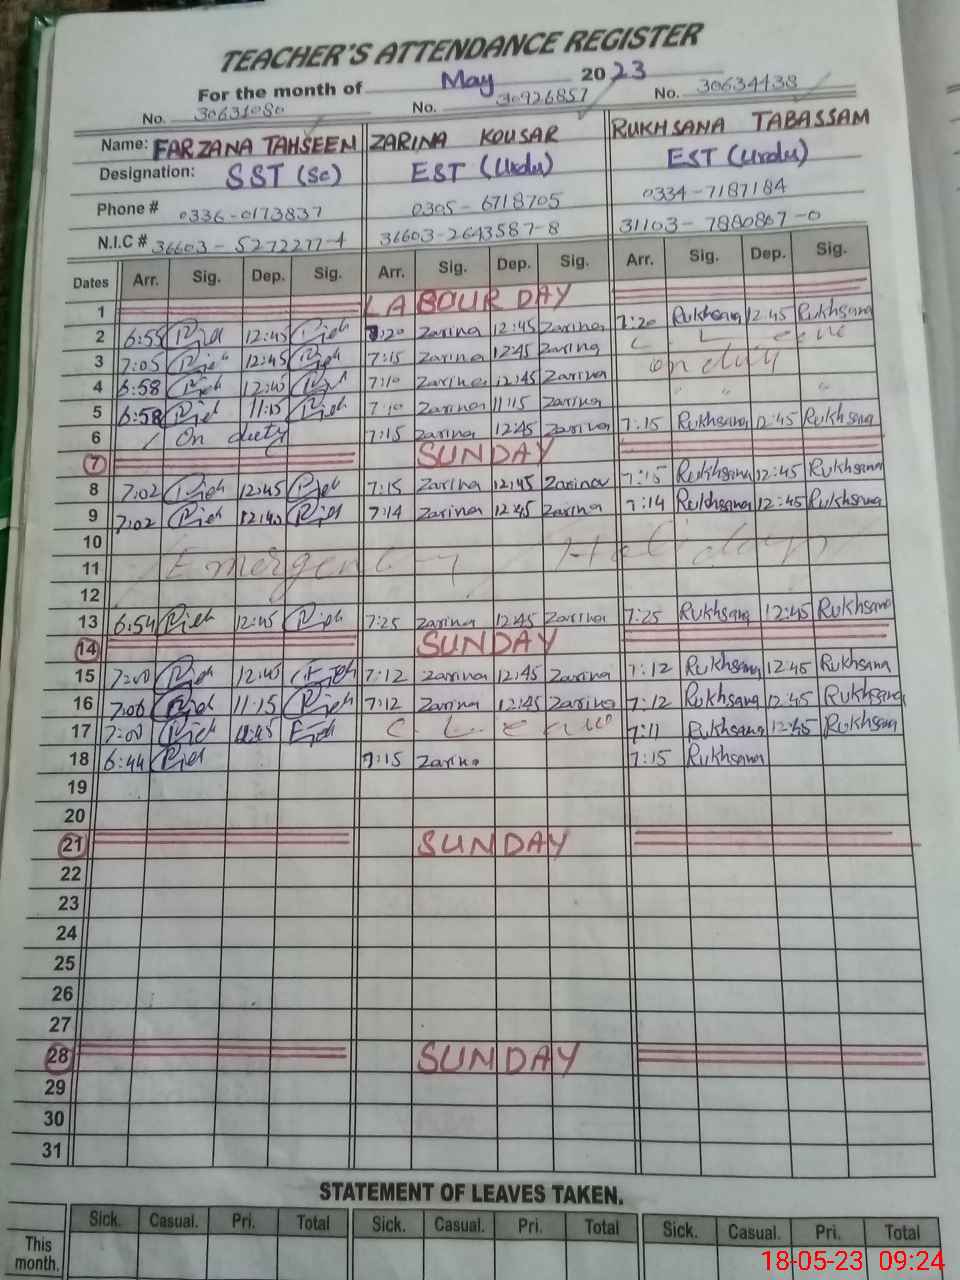 TEACHER'S ATTENDANCE REGISTER
For the month of May 2023
No. 30631080 No. 30926857 No. 30634438
Name: FARZANA TAHSEEN ZARINA KOUSAR RUKHSANA TABASSAM
Designation: SST (Sc) EST (Urdu) EST (Urdu)
Phone # 0336-0173837 0305-6718705 0334-7187184
N.I.C # 36603-5272277-4 36603-2643587-8 31103-7880867-0
Dates Arr. Sig. Dep. Sig. Arr. Sig. Dep. Sig. Arr. Sig. Dep. Sig.
1 LABOUR DAY
2 6:55 12:45 7:20 Zarina 12:45 Zarina 7:20 Rukhsana 12:45 Rukhsana
3 7:05 12:45 7:15 Zarina 12:45 Zarina C. Leave
4 6:58 12:45 7:10 Zarina 12:45 Zarina on duty
5 6:58 11:15 7:10 Zarina 11:15 Zarina " " "
6 On duty 7:15 Zarina 12:45 Zarina 7:15 Rukhsana 12:45 Rukhsana
7 SUNDAY
8 7:02 12:45 7:15 Zarina 12:45 Zarina 7:15 Rukhsana 12:45 Rukhsana
9 7:02 12:45 7:14 Zarina 12:45 Zarina 7:14 Rukhsana 12:45 Rukhsana
10
11 Emergency Holidays
12
13 6:54 12:45 7:25 Zarina 12:45 Zarina 7:25 Rukhsana 12:45 Rukhsana
14 SUNDAY
15 7:00 12:45 7:12 Zarina 12:45 Zarina 7:12 Rukhsana 12:45 Rukhsana
16 7:00 11:15 7:12 Zarina 12:45 Zarina 7:12 Rukhsana 12:45 Rukhsana
17 7:00 12:45 C. Leave 7:11 Rukhsana 12:45 Rukhsana
18 6:44 7:15 Zarina 7:15 Rukhsana
19
20
21 SUNDAY
22
23
24
25
26
27
28 SUNDAY
29
30
31
STATEMENT OF LEAVES TAKEN.
Sick. Casual. Pri. Total Sick. Casual. Pri. Total Sick. Casual. Pri. Total
This
month.
18-05-23 09:24